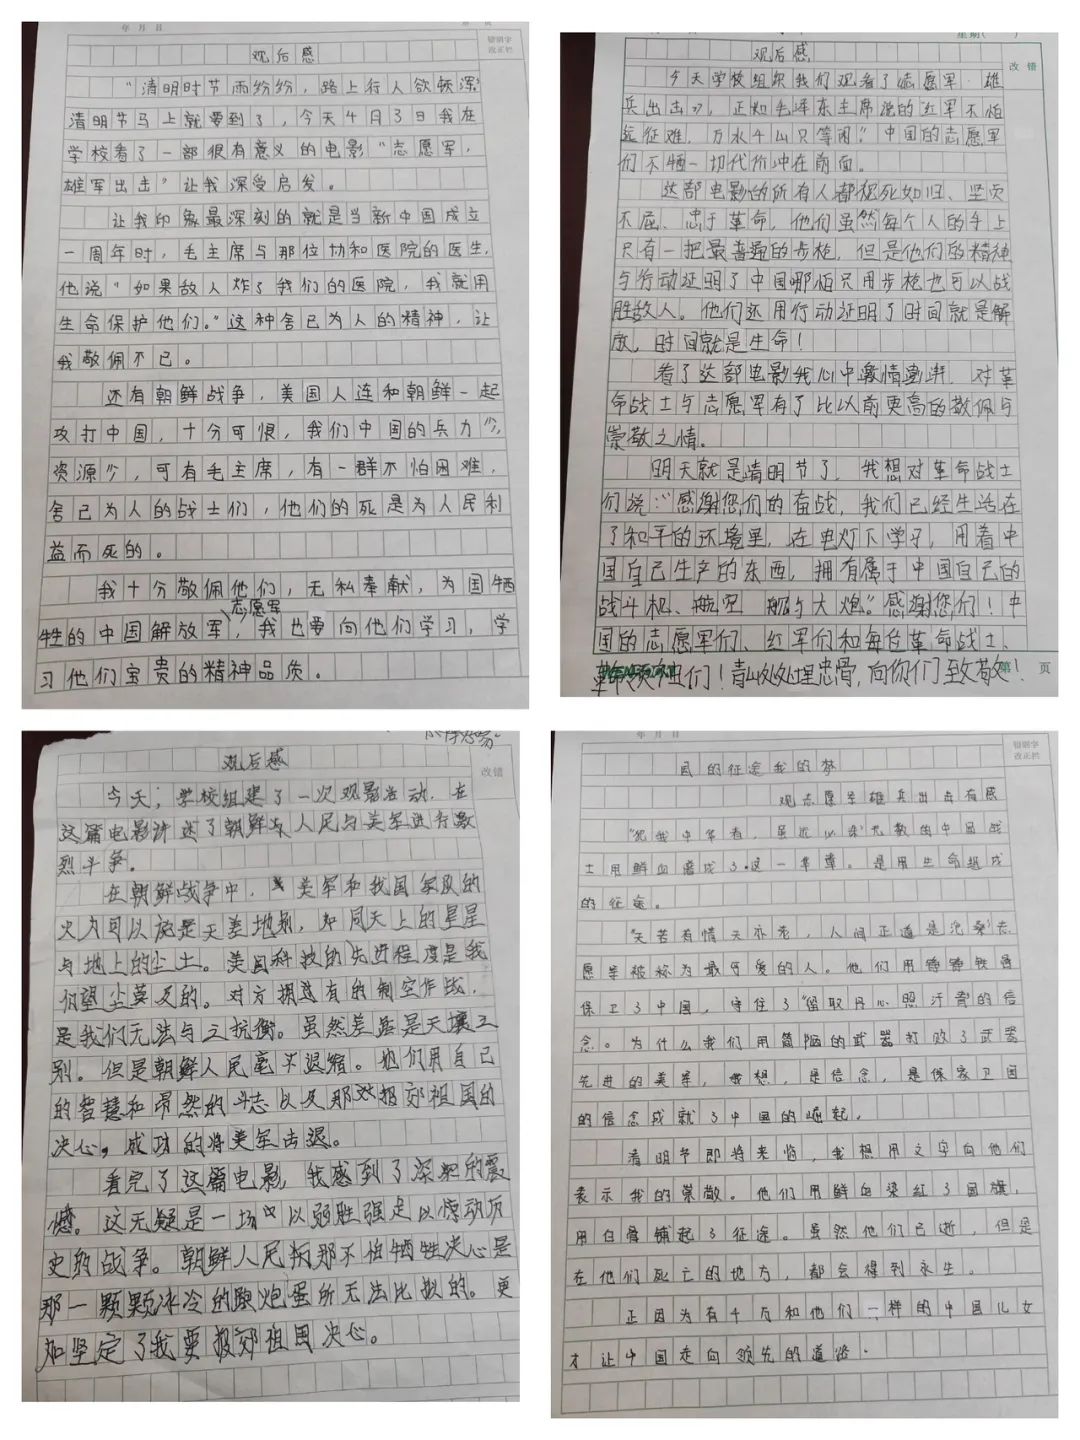 年 月 日
错别字
改正栏
观后感
“清明时节雨纷纷，路上行人欲顿深”
清明节马上就要到了，今天4月3日我在
学校看了一部很有意义的电影“志愿军，
雄军出击”让我深受启发。
让我印象最深刻的就是当新中国成立
一周年时，毛主席与那位协和医院的医生，
他说“如果敌人炸了我们的医院，我就用
生命保护他们。”这种舍己为人的精神，让
我敬佩不已。
还有朝鲜战争，美国人连和朝鲜一起
攻打中国，十分可恨，我们中国的兵力少，
资源少，可有毛主席，有一群不怕困难，
舍己为人的战士们，他们的死是为人民利
益而死的。
我十分敬佩他们，无私奉献，为国牺
志愿军
牲的中国解放军，我也要向他们学习，学
习他们宝贵的精神品质。
星期( )
改错
观后感
今天学校组织我们观看了《志愿军·雄
兵出击》，正如毛泽东主席说的“红军不怕
远征难，万水千山只等闲”中国的志愿军
们不牺一切代价冲在前面。
这部电影的所有人都视死如归、坚贞
不屈、忠于革命，他们虽然每个人的手上
只有一把最普通的步枪，但是他们的精神
与行动证明了中国哪怕只用步枪也可以战
胜敌人。他们还用行动证明了时间就是解
放，时间就是生命！
看了这部电影我心中激情澎湃，对革
命战士与志愿军有了比以前更高的敬佩与
崇敬之情。
明天就是清明节了，我想对革命战士
们说：“感谢您们的奋战，我们已经生活在
了和平的环境里，在电灯下学习，用着中
国自己生产的东西，拥有属于中国自己的
战斗机、航空 舰与大炮。”感谢您们！中
国的志愿军们、红军们和每位革命战士、
革命 们！青山处处埋忠骨，向你们致敬！
第 页
改错
观后感
今天，学校组建了一次观影活动，在
这篇电影讲述了朝鲜 人民与美军进行激
烈斗争。
在朝鲜战争中， 美军和我国家队的
火力可以说是天差地别，如同天上的星星
与地上的尘土。美国科技的先进程度是我
们望尘莫及的。对方拥有的制空作战，
是我们无法与之抗衡。虽然差距是天壤之
别。但是朝鲜人民毫不退缩。他们用自己
的智慧和昂然的斗志以及那 报效祖国的
决心，成功的将美军击退。
看完了这篇电影，我感到了深深的震
憾。这无疑是一场 以弱胜强足以惊动历
史的战争。朝鲜人民 那不怕牺牲决心是
那一颗颗冰冷的 炮蛋所无法比拟的。更
加坚定了我要报效祖国决心。
年 月 日
错别字
改正栏
国的征途我的梦
观志愿军雄兵出击有感
“犯我中华者，虽远必诛”无数的中国战
士用鲜血磨成了这一 章。是用生命组成
的征途。
“天若有情天亦老，人间正道是沧桑”志
愿军被称为最可爱的人。他们用铮铮铁骨
保卫了中国，守住了“留取丹心照汗青”的信
念。为什么我们用简陋的武器打败了武器
先进的美军，我想，是信念，是保家卫国
的信念成就了中国的崛起。
清明节即将来临，我想用文字向他们
表示我的崇敬。他们用鲜血染红了国旗，
用白骨铺起了征途。虽然他们已逝，但是
在他们死亡的地方，都会得到永生。
正因为有千万和他们一样的中国儿女
才让中国走向领先的道路。